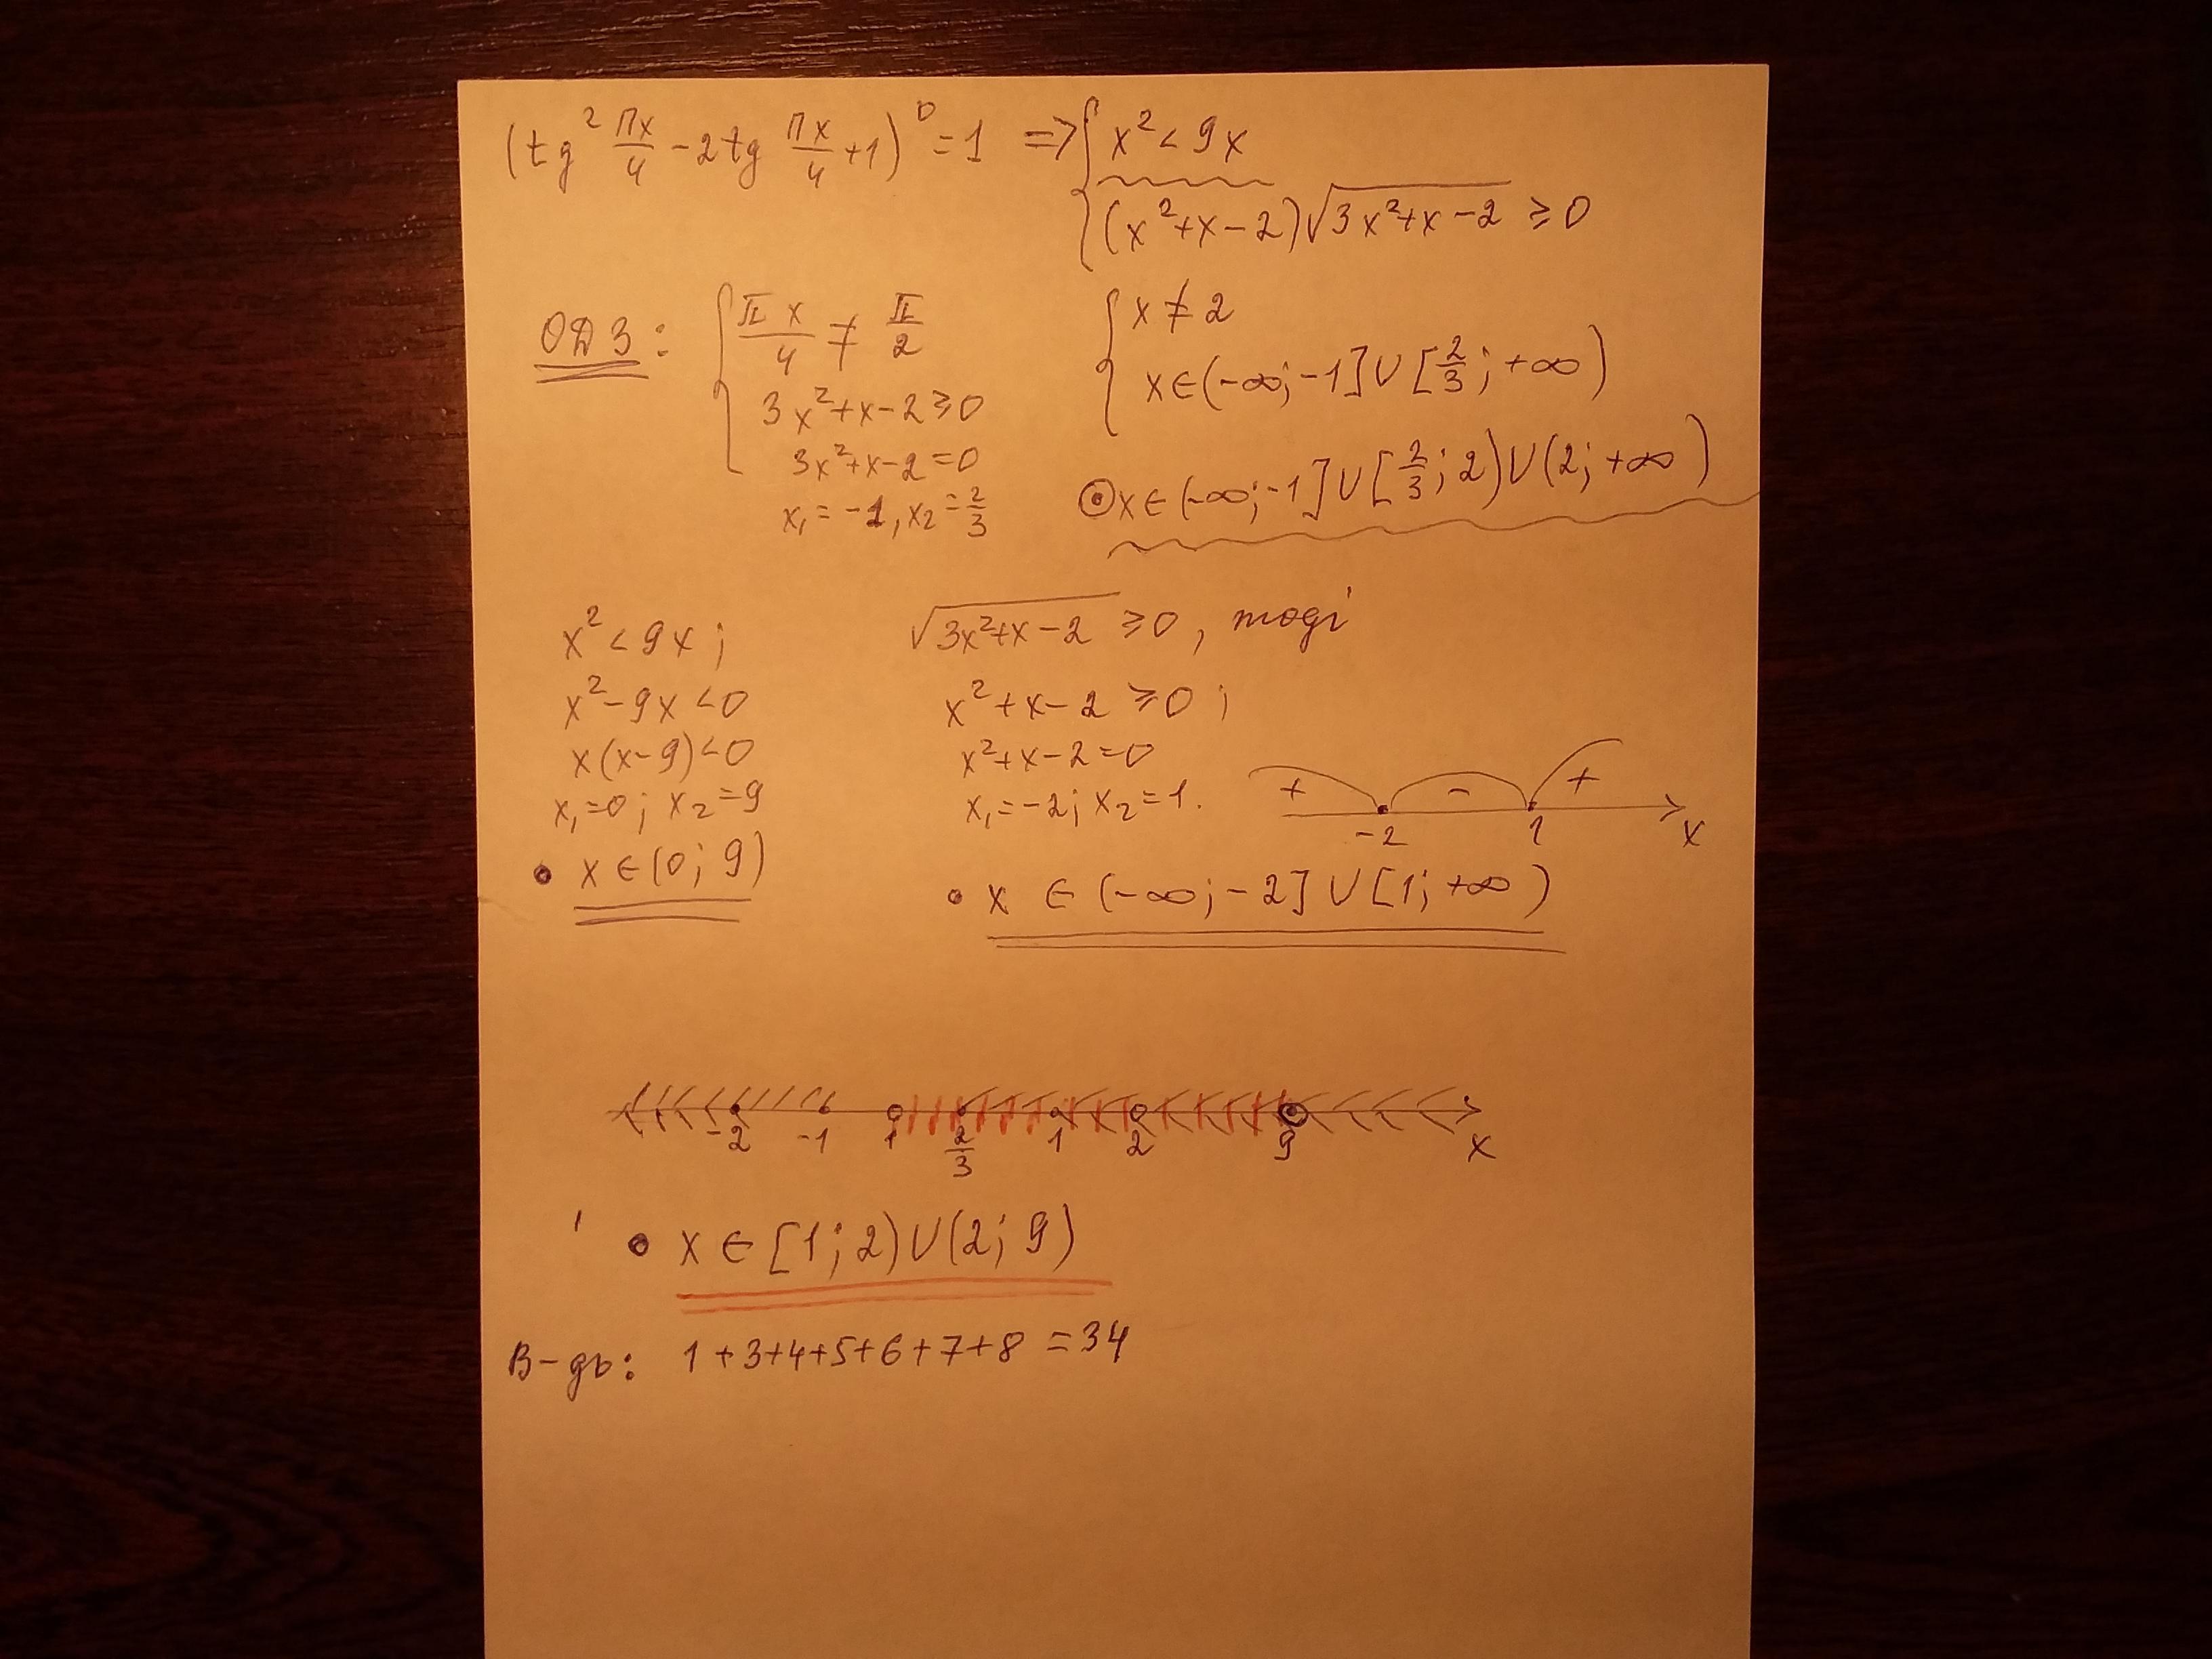 (tg² πx/4 - 2tg πx/4 + 1)⁰ = 1 => { x² < 9x
(x² + x - 2)√(3x² + x - 2) ≥ 0
ОДЗ: { πx/4 ≠ π/2
3x² + x - 2 ≥ 0
3x² + x - 2 = 0
x₁ = -1, x₂ = 2/3
{ x ≠ 2
x ∈ (-∞; -1] ∪ [2/3; +∞)
x ∈ (-∞; -1] ∪ [2/3; 2) ∪ (2; +∞)
x² < 9x;
x² - 9x < 0
x(x - 9) < 0
x₁ = 0; x₂ = 9
• x ∈ (0; 9)
√(3x² + x - 2) ≥ 0, тоді
x² + x - 2 ≥ 0;
x² + x - 2 = 0
x₁ = -2; x₂ = 1.
+ - +
-2 1 x
• x ∈ (-∞; -2] ∪ [1; +∞)
-2 -1 2/3 1 2 9 x
• x ∈ [1; 2) ∪ (2; 9)
В-дь: 1 + 3 + 4 + 5 + 6 + 7 + 8 = 34